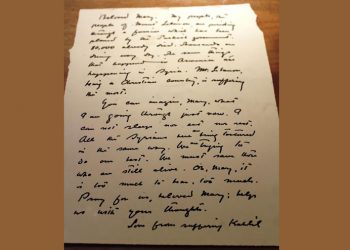 Beloved Mary, My people, the
people of Mount Lebanon are perishing
through a famine which has been
planned by the Turkish government.
80,000 already died. Thousands are
dying every day. The same things
that happened in Armenia are
happening in Syria. Mt. Lebanon,
being a Christian country, is suffering
the most.
You can imagine, Mary, what
I am going through just now. I
can not sleep, nor eat nor rest.
All the Syrians are being tortured
in the same way. We are trying to
do our best. We must save those
who are still alive. Oh, Mary, it
is too much to bear, too much.
Pray for us, beloved Mary; help
us with your thoughts.
Love from suffering Kahlil